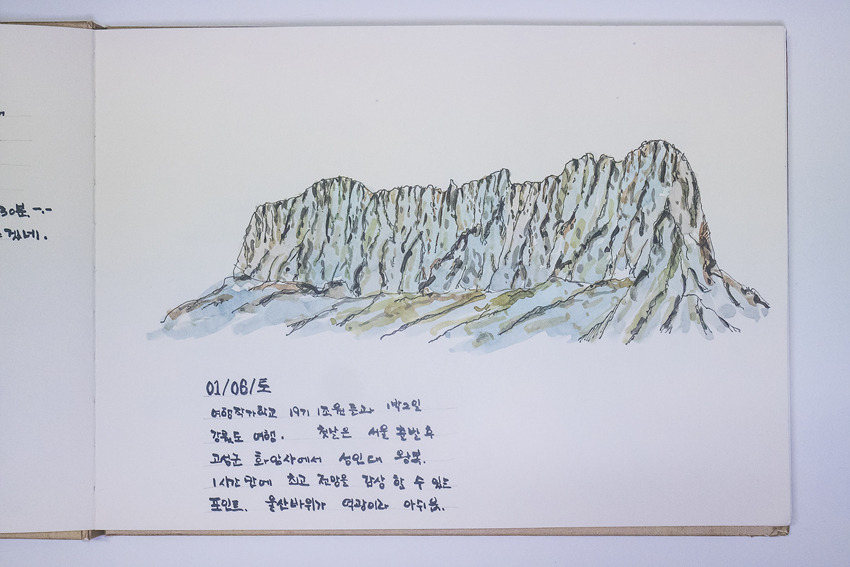 30분 -.-
겠네.
01/06/토
여행작가학교 19기 1조원들과 1박2일
강원도 여행. 첫날은 서울 출발 후
고성군 화암사에서 성인대 왕복.
1시간 만에 최고 전망을 감상 할 수 있는
포인트. 울산바위가 역광이라 아쉬움.